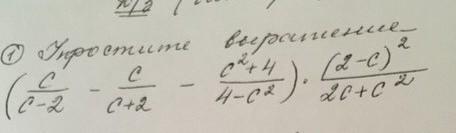 ① Упростите выражение
(c/(c-2) - c/(c+2) - (c²+4)/(4-c²)) · (2-c)²/(2c+c²)